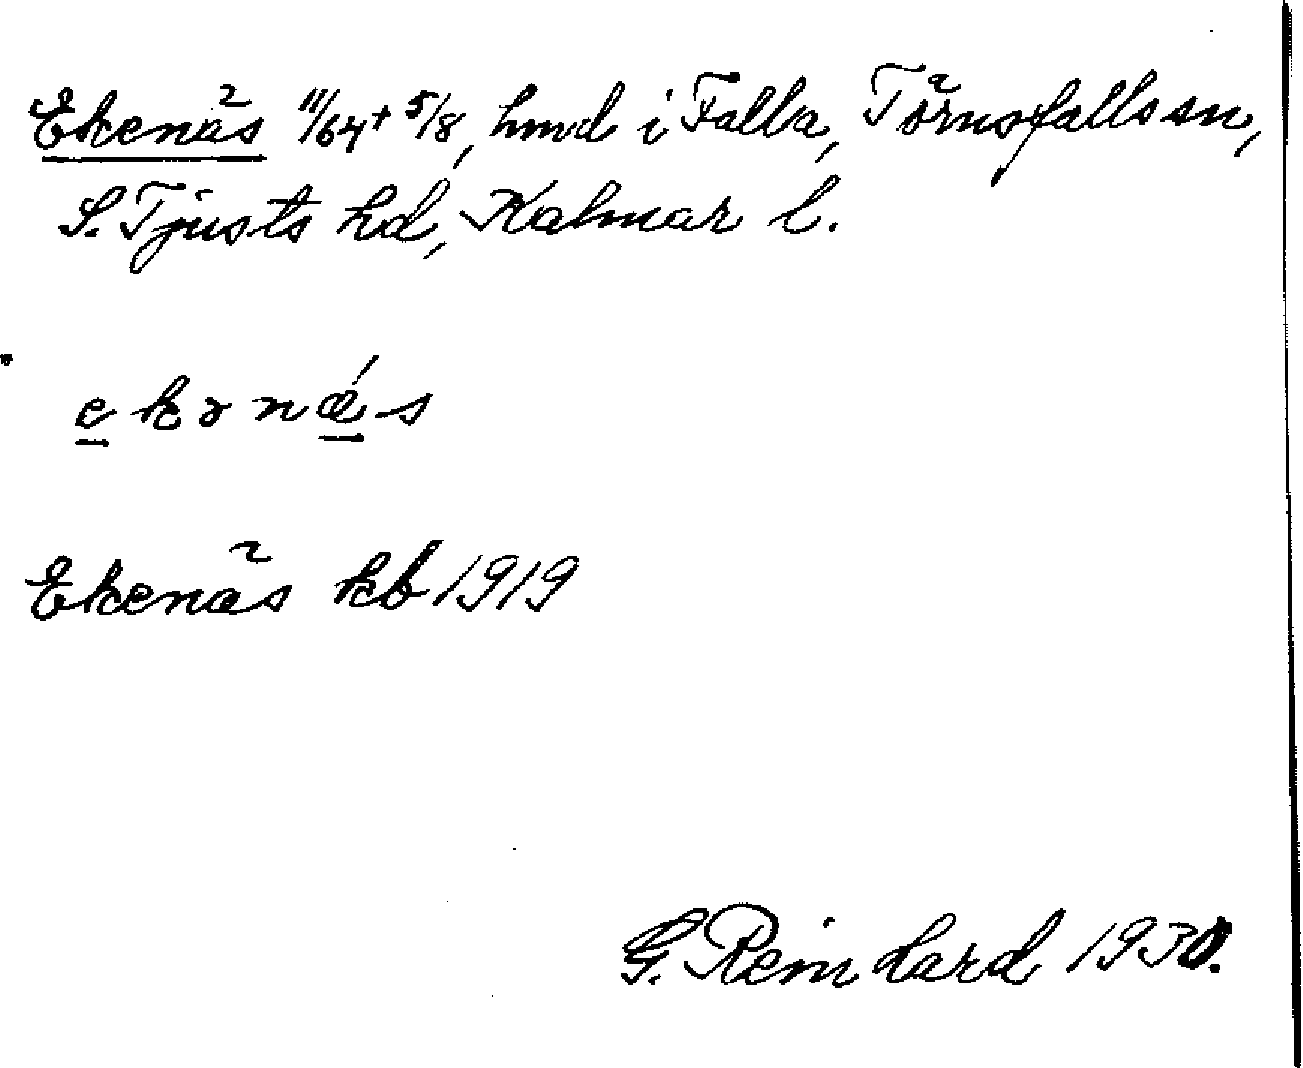 Ekenäs 11/64 + 5/8, hmd i Falla, Törnsfalls sn,
S. Tjusts hd, Kalmar l.
ekənǽs
Ekenäs kb 1919
G. Reinhard 1930.